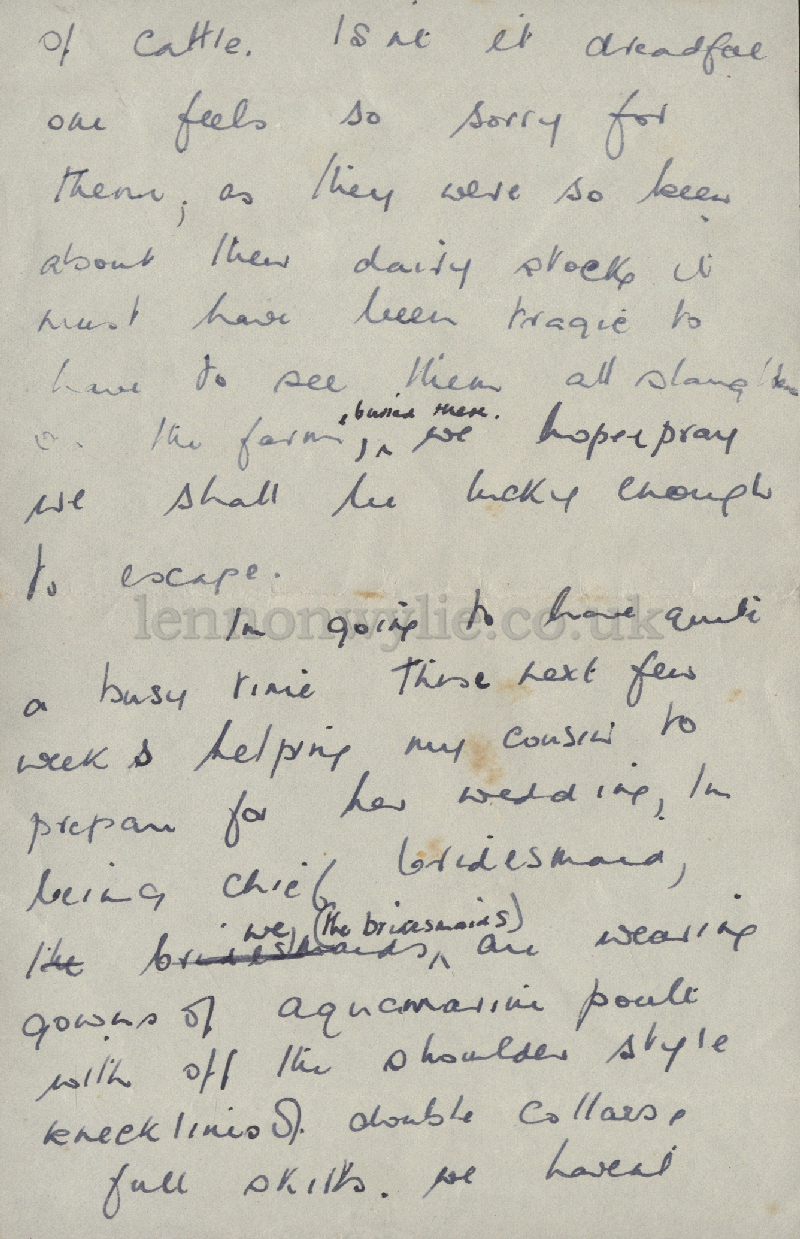 of cattle. Isnt it dreadful
one feels so sorry for
them, as they were so keen
about their dairy stock, it
must have been tragic to
have to see them all slaughtered
on the farm, & buried there. we hope & pray
we shall be lucky enough
to escape.
lennonwylie.co.uk
Im going to have quite
a busy time these next few
weeks helping my cousin to
prepare for her wedding, Im
being chief bridesmaid,
we, (the bridesmaids)
the bridesmaids, are wearing
gowns of aquamarine poult
with off the shoulder style
knecklines & double collars,
full skirts. we havent